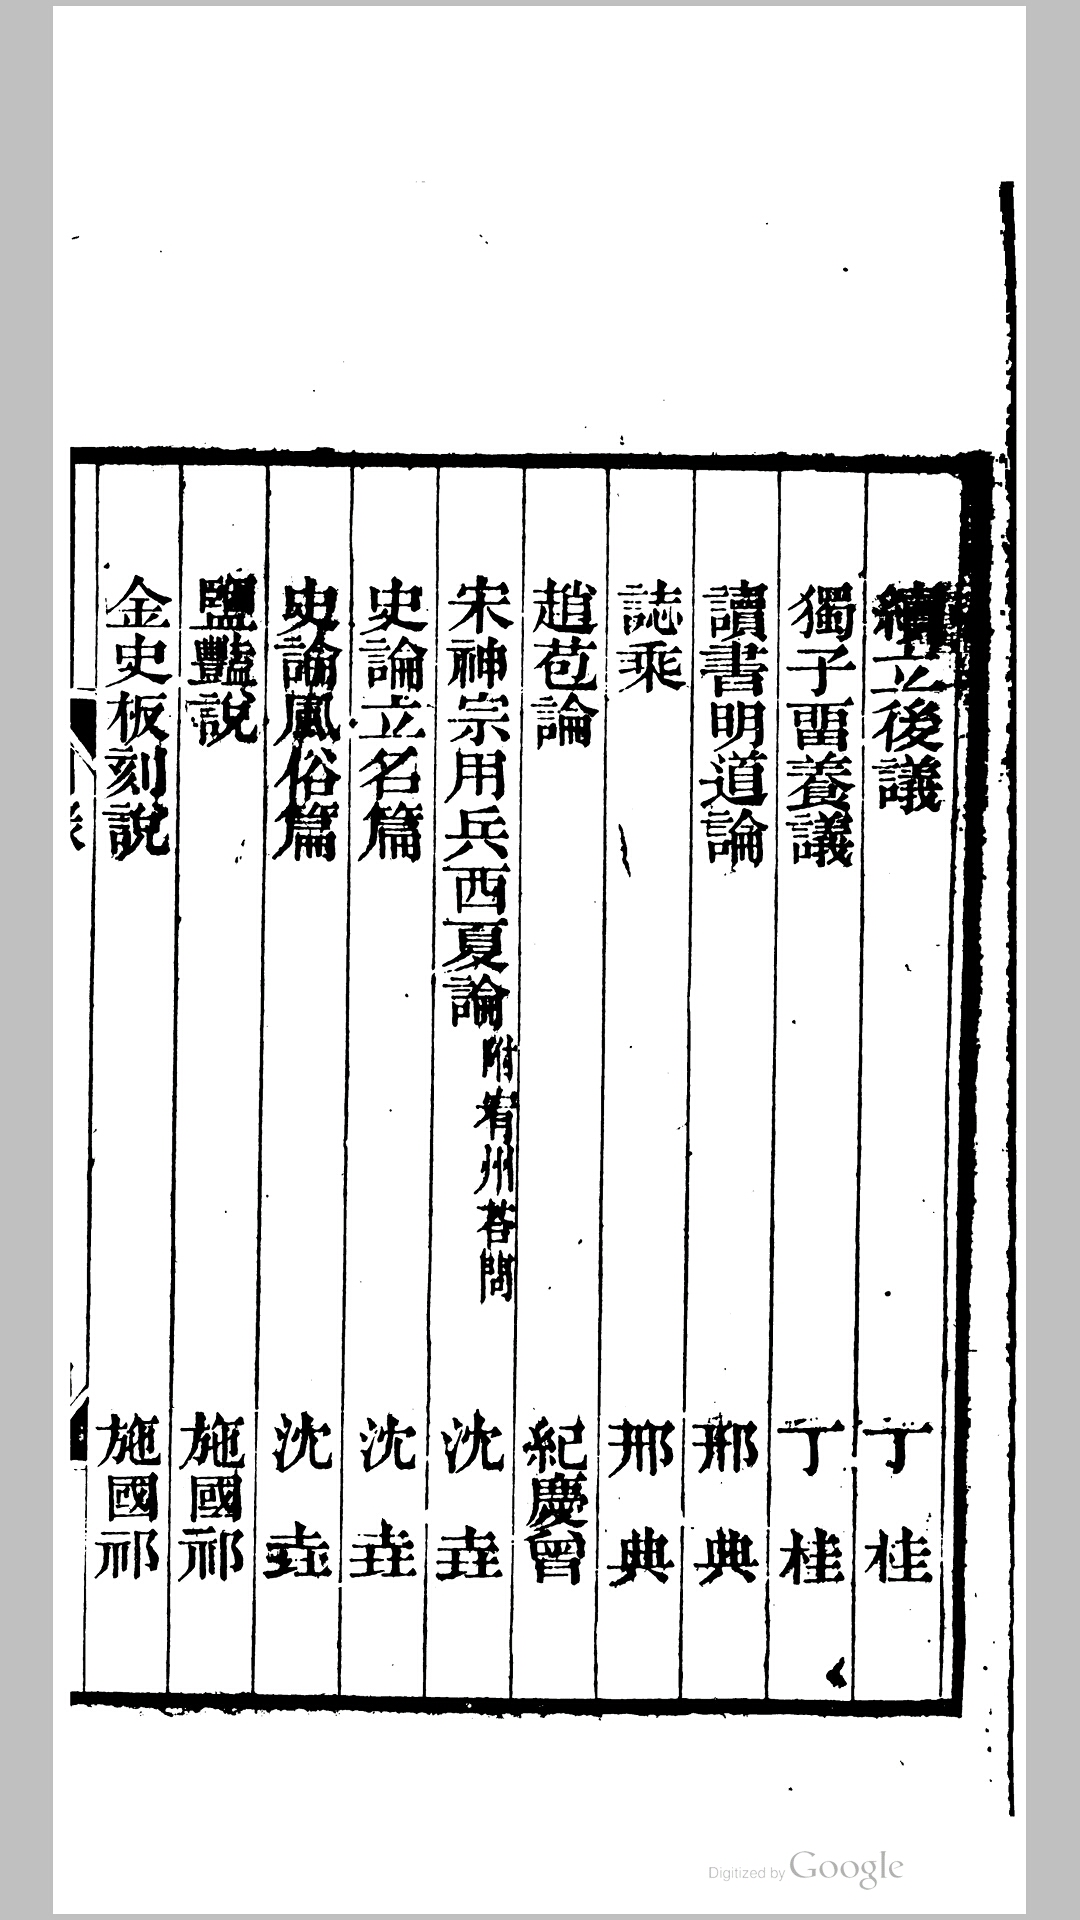 續立後議　丁桂
獨子畱養議　丁桂
讀書明道論　邢典
誌乘　邢典
趙苞論　紀慶曾
宋神宗用兵西夏論附宥州荅問　沈垚
史論立名篇　沈垚
史論風俗篇　沈垚
鹽豔說　施國祁
金史板刻說　施國祁
Digitized by Google